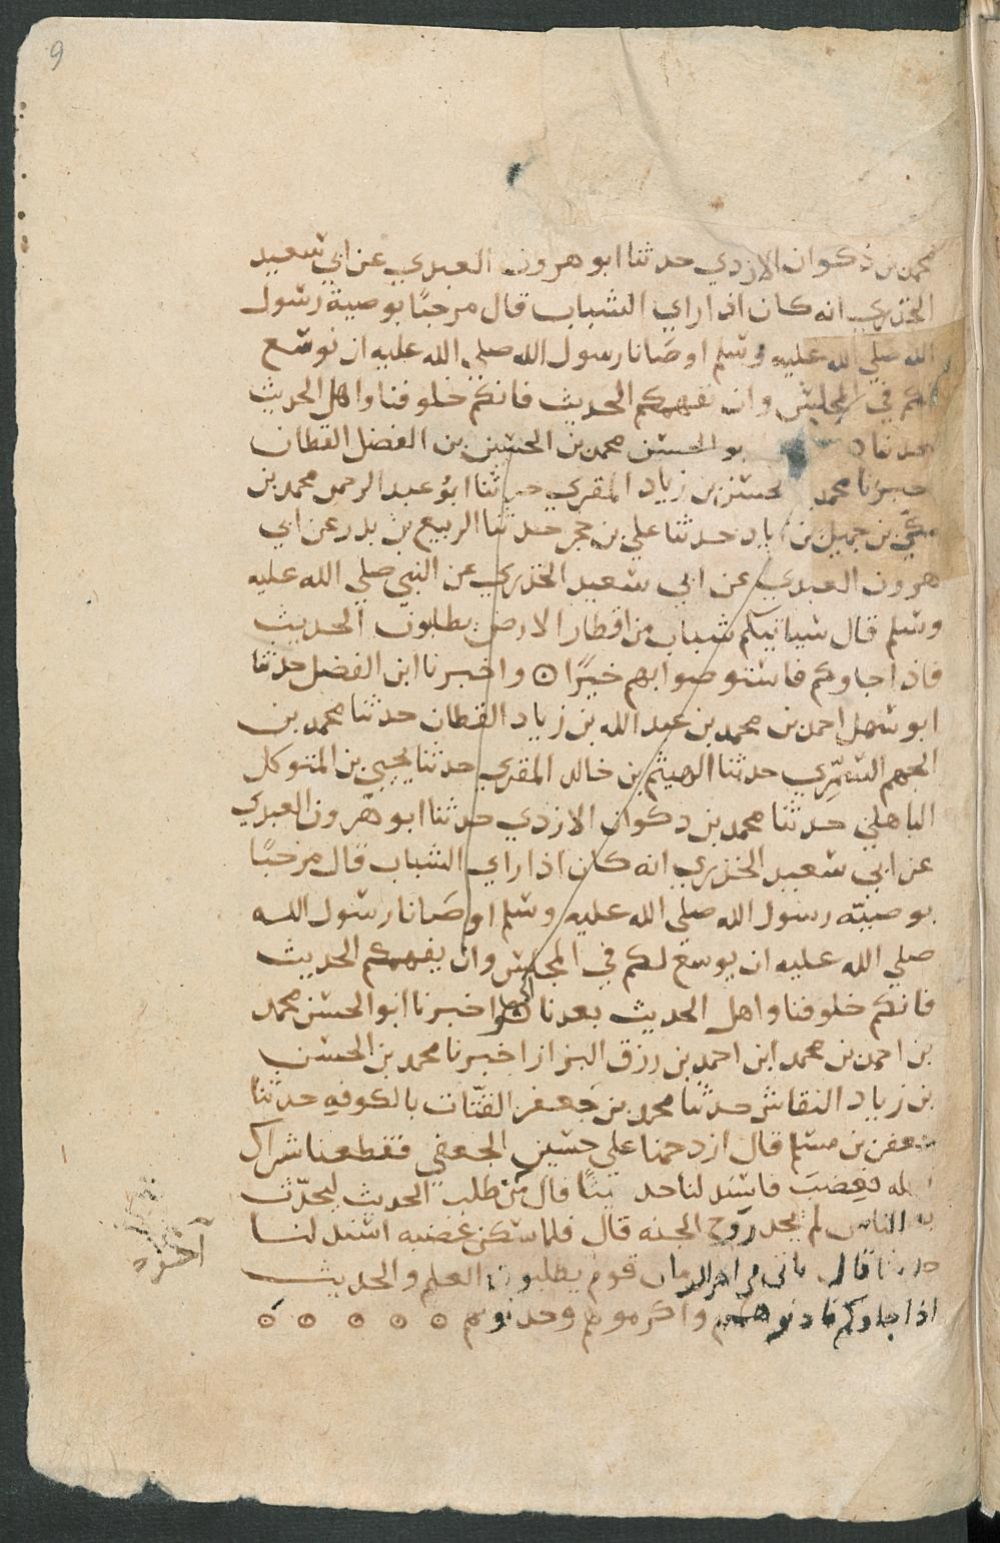 9
محمد بن ذكوان الازدي حدثنا ابو هرون العبدي عن ابي سعيد
الخدري انه كان اذا راي الشباب قال مرحبًا بوصية رسول
الله صلي الله عليه وسلم اوصَانا رسول الله صلي الله عليه ان نوسع
لكم في المجلس وان نفهمكم الحديث فانكم خلوفنا واهل الحديث
بعدنا بو الحسين محمد بن الحسين بن الفضل القطان
خبرنا محمد لحسن بن زياد المقري حدثنا ابوُ عبد الرحمن محمد بن
مكيّ بن جميل بن ياد حدثنا علي بن حجر حدثنا الربيع بن بدر عن ابي
هرون العبدي عن ابي سعيد الخدري عن النبي صلي الله عليه
وسلم قال سياتيكم شباب من اقطار الارض يطلبون الحديث
فاذا جاوكم فاستوصوا بهم خيرًا ⊙ واخبرنا ابن الفضل حدثنا
ابو سهل احمد بن محمد بن عبد الله بن زياد القطان حدثنا محمد بن
الجهم السَّمَّرِي حدثنا الهيثم بن خالد المقري حدثنا يحيي بن المتوكل
الباهلي حدثنا محمد بن ذكوان الازدي حدثنا ابو هرون العبدي
عن ابي سعيد الخدري انه كان اذا راي الشباب قال مرحبًا
بوصيّة رسول الله صلي الله عليه وسلم اوصَانا رسول الله
صلي الله عليه ان يوسع لكم في المجلس وان يفهمكم الحديث
فانكم خلوفنا واهل الحديث بعدنا اخبرنا ابو الحسن محمد
بن احمد بن محمد ابن احمد بن رزق البزاز اخبرنا محمد بن الحسن
بن زياد النقاش حدثنا محمد بن جَعفر القتّات بالكوفهِ حدثنا
جعفر بن مسلم قال ازدحمنا علي حسين الجعفي فقطعنا شراك
نعله فغضبَ فاسند لنا حديثًا قال مَن طلب الحديث ليحدّث
به الناس لم يجد رَوح الجنه قال فلما سكن غضبه اسند لنا
حديثا قال ياتي في اخر الزمان قوم يطلبون العلم والحديث
اذا جاوكم فادنوهم واكرموهم وحدثوهم ⊙ ⊙ ⊙ ⊙ ⊙
آخره